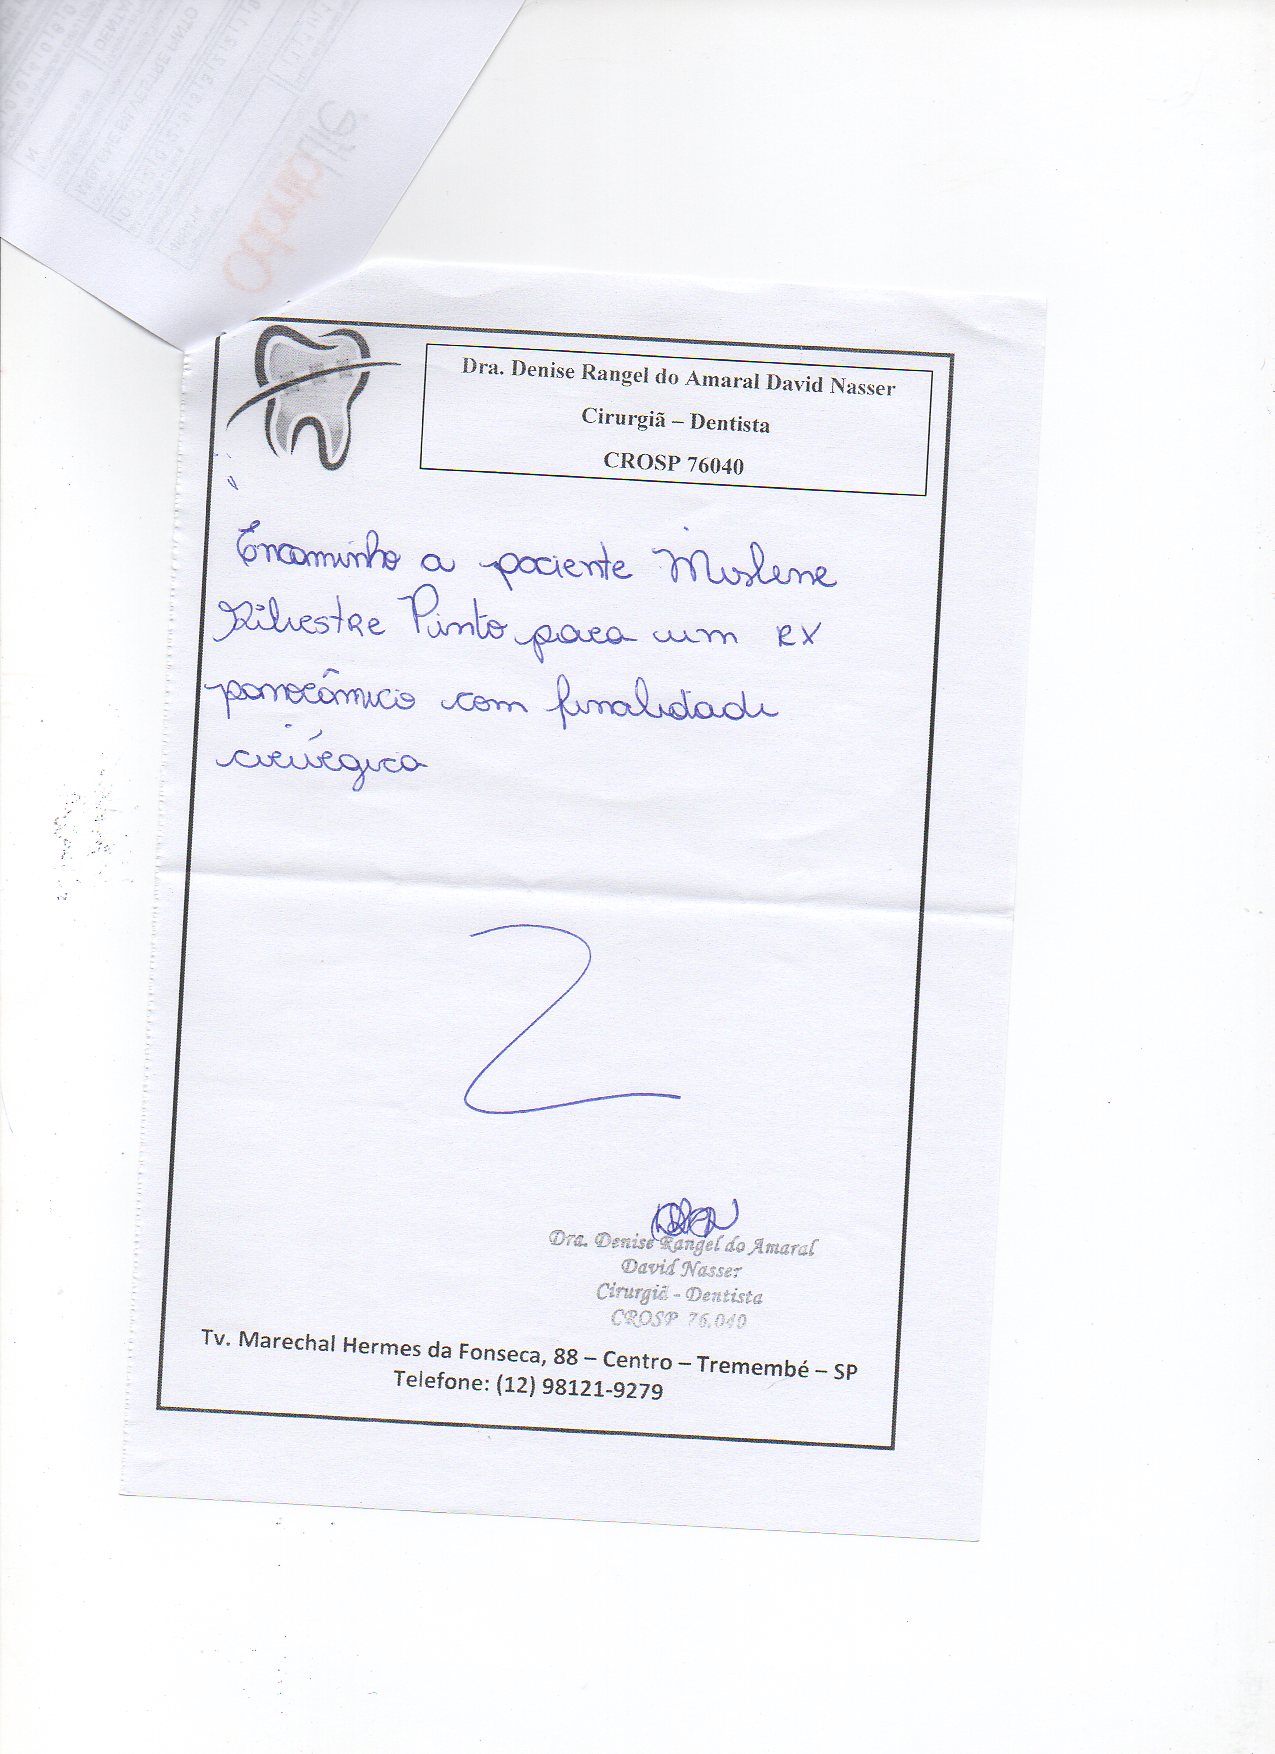 Dra. Denise Rangel do Amaral David Nasser
Cirurgiã – Dentista
CROSP 76040
Encaminho a paciente Mislene
Silvestre Pinto para um RX
panorâmico com finalidade
cirúrgica
Dra. Denise Rangel do Amaral
David Nasser
Cirurgiã - Dentista
CROSP 76.040
Tv. Marechal Hermes da Fonseca, 88 – Centro – Tremembé – SP
Telefone: (12) 98121-9279